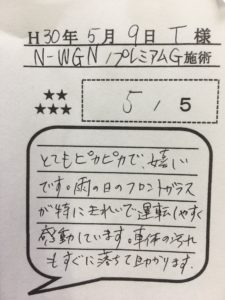 H30年5月9日T様
N-WGN/プレミアムG施術
★★
★★★
5/5
とてもピカピカで、嬉しい
です。雨の日のフロントガラス
が特にきれいで運転しやすく
感動しています。車体の汚れ
もすぐに落ちて助かります。